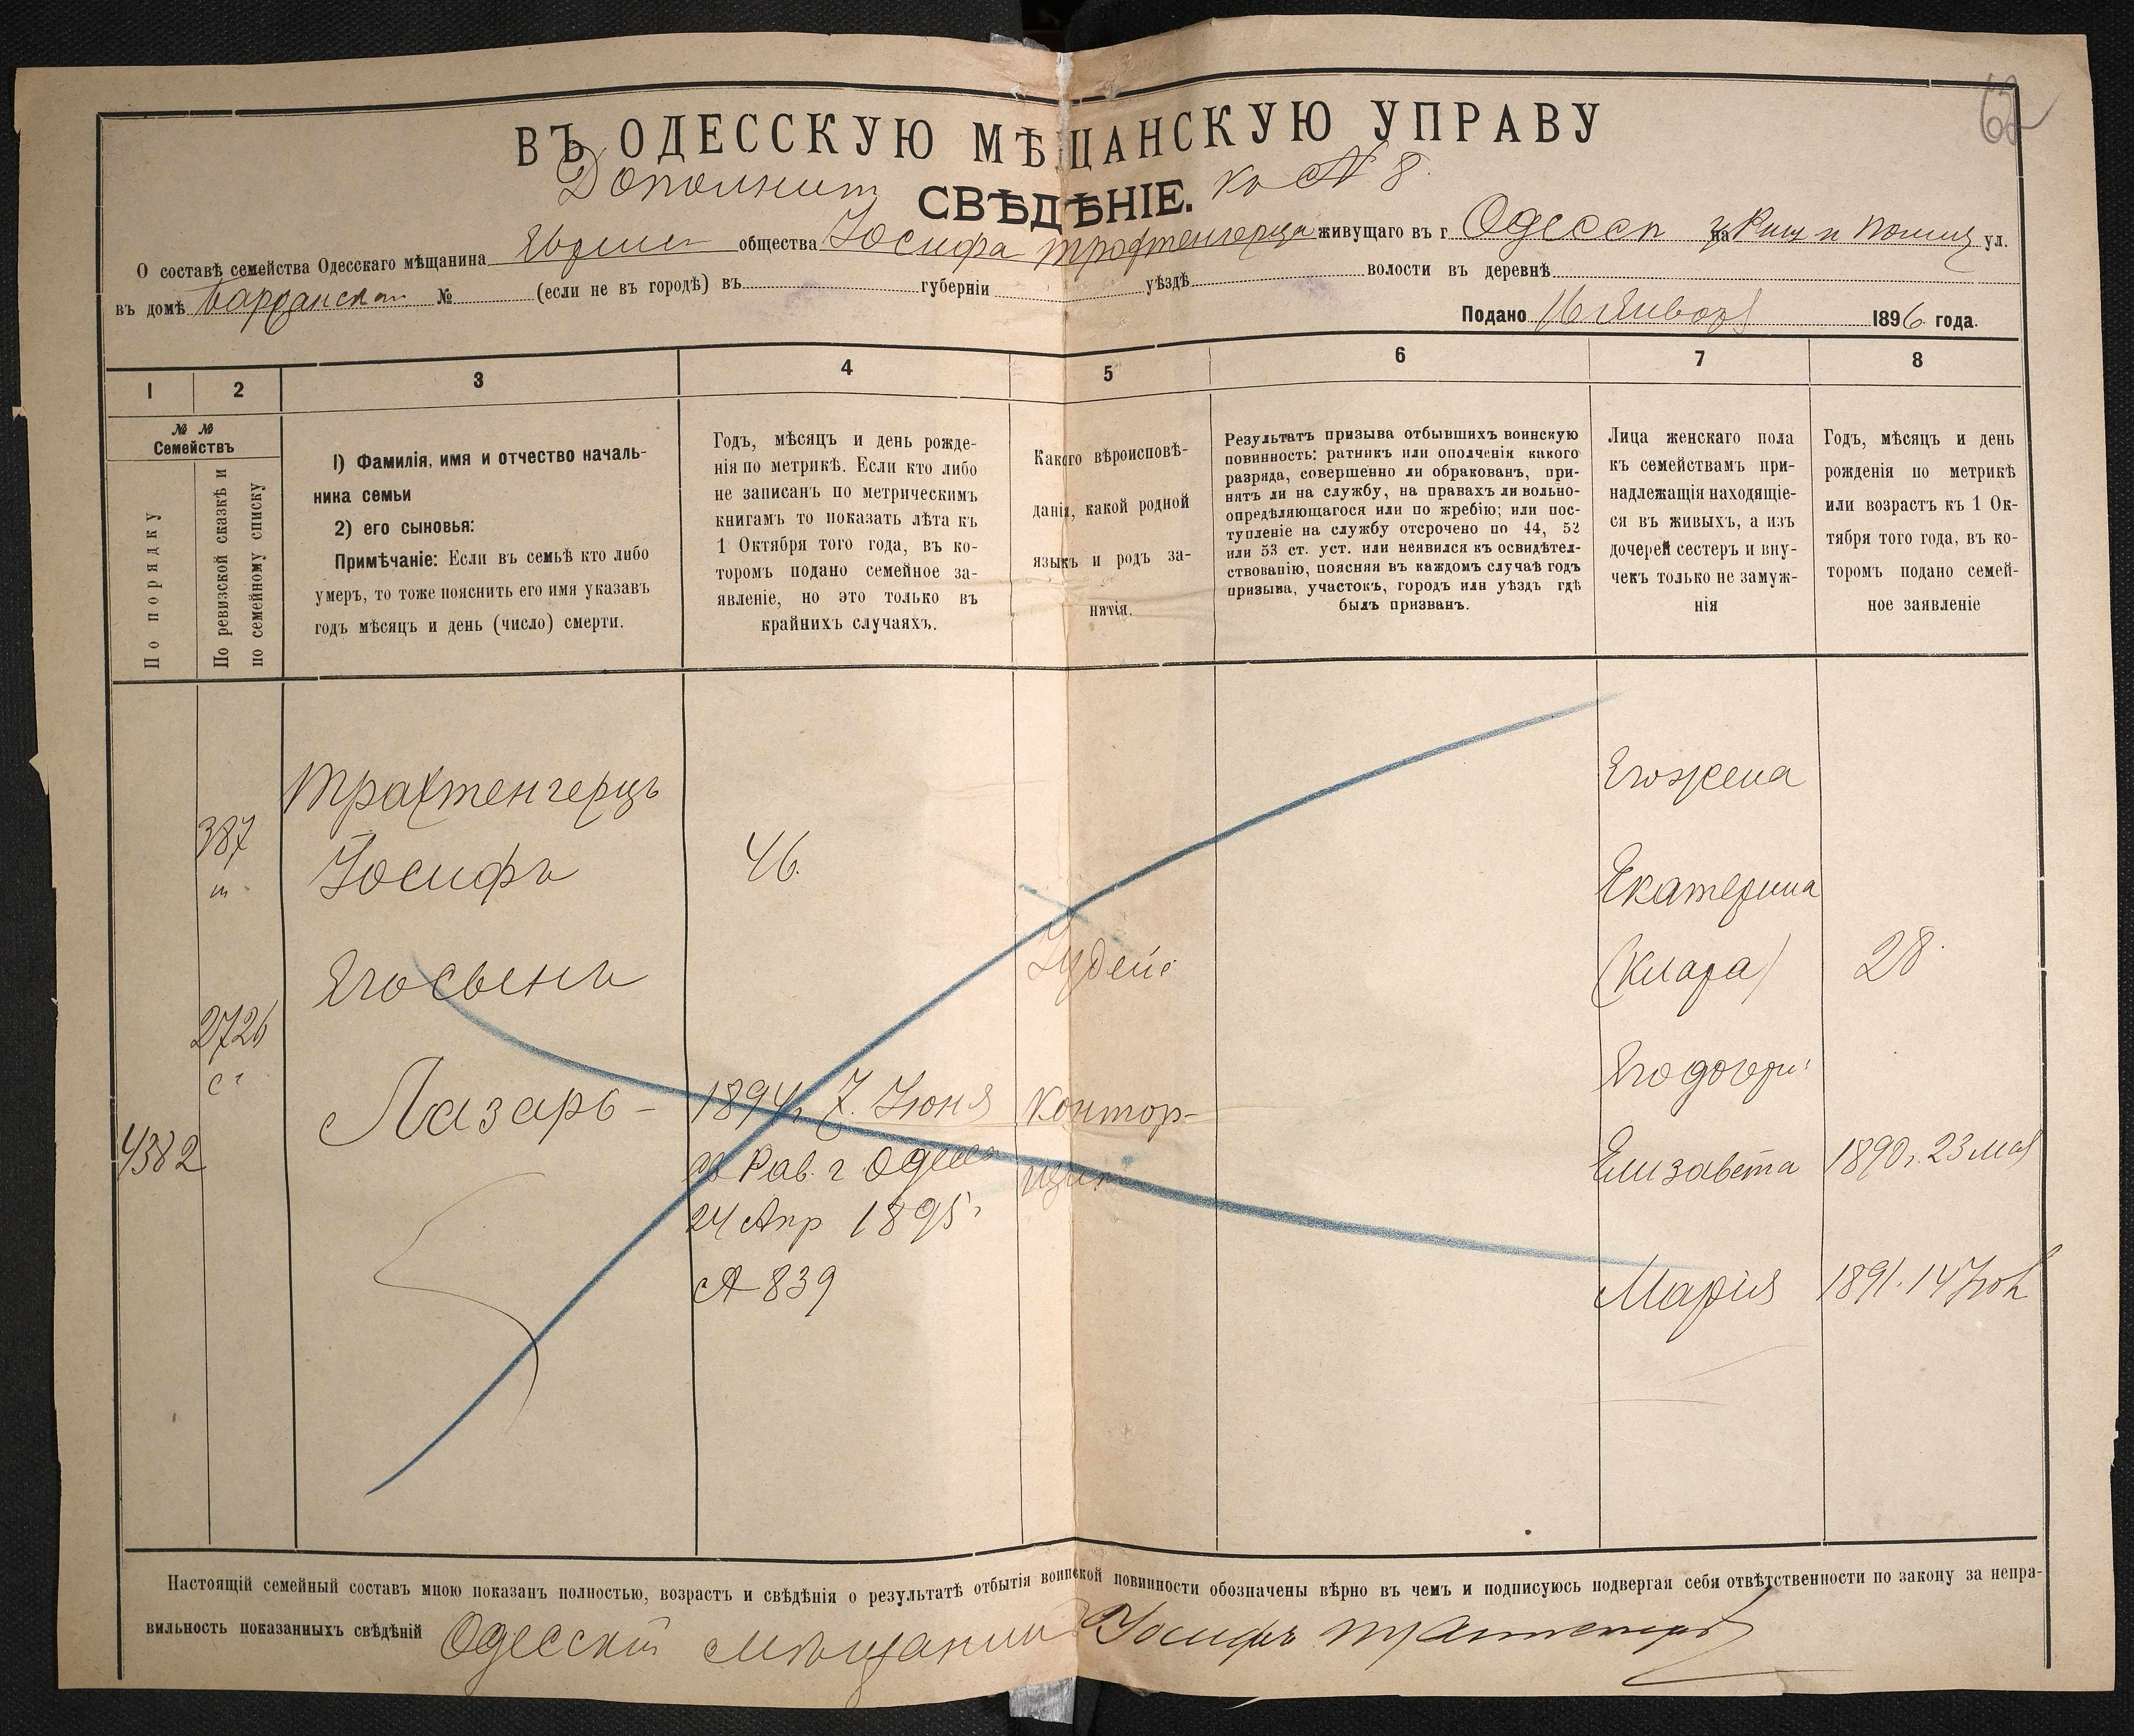 62
ВЪ ОДЕССКУЮ МѢЩАНСКУЮ УПРАВУ
Дополнит. СВѢДѢНІЕ. къ № 8.
О составѣ семейства Одесскаго мѣщанина общества Іосифа Трахтенгерца живущаго въ г. Одессѣ на ул.
въ домѣ № (если не въ городѣ) въ губерніи уѣздѣ волости въ деревнѣ
Подано 16 Января 1896 года.
1 2 3 4 5 6 7 8
№ № Семействъ
По порядку
По ревизской сказкѣ и
по семейному списку
1) Фамилія, имя и отчество началь-
ника семьи
2) его сыновья:
Примѣчаніе: Если въ семьѣ кто либо
умеръ, то тоже пояснить его имя указавъ
годъ мѣсяцъ и день (число) смерти.
Годъ, мѣсяцъ и день рожде-
нія по метрикѣ. Если кто либо
не записанъ по метрическимъ
книгамъ то показать лѣта къ
1 Октября того года, въ ко-
торомъ подано семейное за-
явленіе, но это только въ
крайнихъ случаяхъ.
Какого вѣроисповѣ-
данія, какой родной
языкъ и родъ за-
нятія.
Результатъ призыва отбывшихъ воинскую
повинность: ратникъ или ополченія какого
разряда, совершенно ли обракованъ, при-
нятъ ли на службу, на правахъ ли вольно-
опредѣляющагося или по жребію; или пос-
тупленіе на службу отсрочено по 44, 52
или 53 ст. уст. или неявился къ освидѣтел-
ствованію, поясняя въ каждомъ случаѣ годъ
призыва, участокъ, городъ или уѣздъ гдѣ
былъ призванъ.
Лица женскаго пола
къ семействамъ при-
надлежащія находящіе-
ся въ живыхъ, а изъ
дочерей сестеръ и вну-
чекъ только не замуж-
нія
Годъ, мѣсяцъ и день
рожденія по метрикѣ
или возрастъ къ 1 Ок-
тября того года, въ ко-
торомъ подано семей-
ное заявленіе
Трахтенгерцъ
Его жена
387
Іосифъ
46.
Екатерина
Его сынъ
Іудейс
(Клара)
28.
2726
Его дочери:
Лазарь - 1894 г. 7. Іюня
Контор-
щикъ
4382
Рав. г. Одессы
24 Апр 1895 г
№ 839
Елизавета 1890 г. 23 мая
Марія 1891. 14
Настоящій семейный составъ мною показанъ полностью, возрастъ и свѣдѣнія о результатѣ отбытія воинской повинности обозначены вѣрно въ чемъ и подписуюсь подвергая себя отвѣтственности по закону за непра-
вильность показанныхъ свѣдѣній Одесскій мѣщанинъ Іосифъ